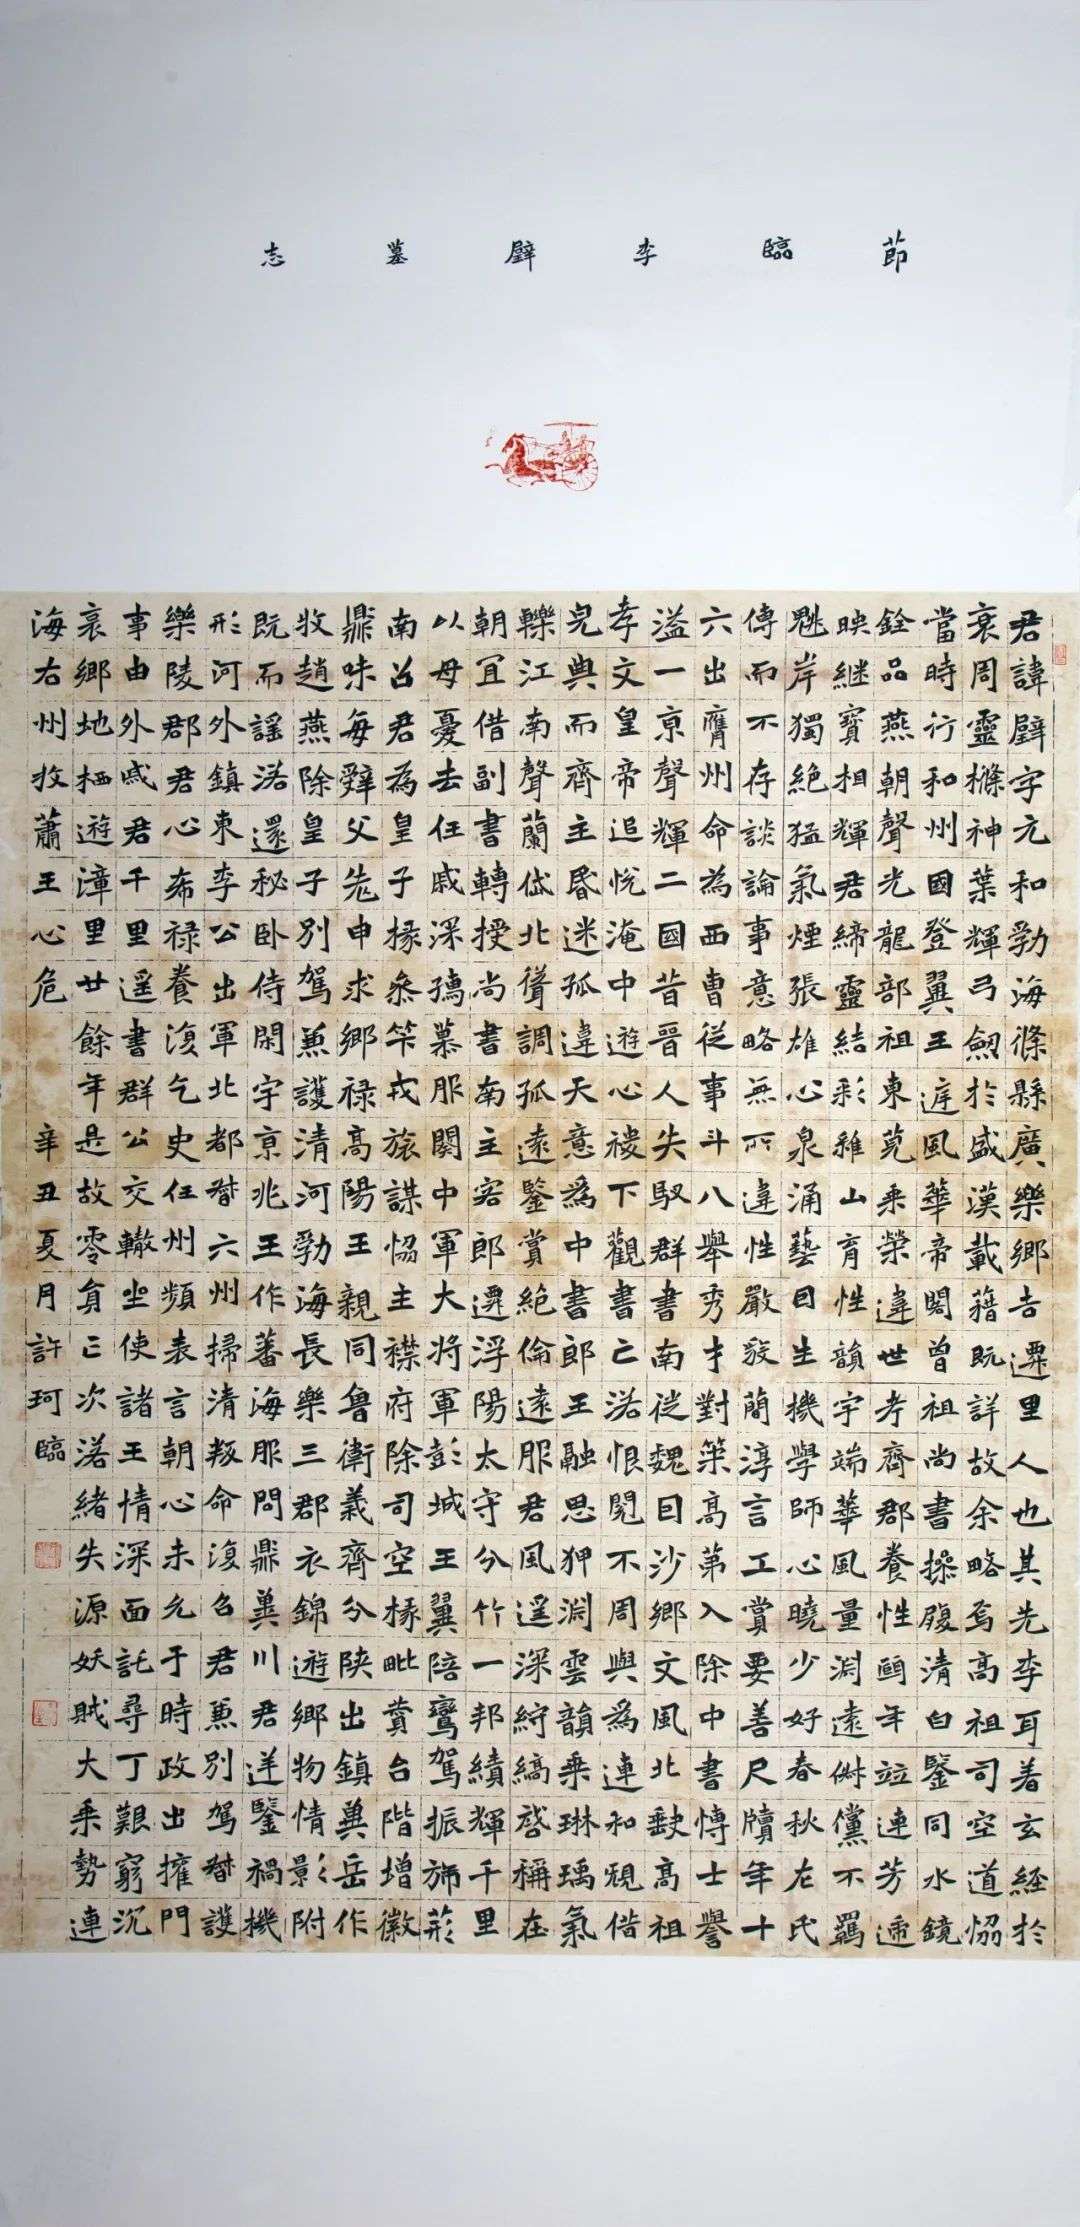 莭臨李璧墓志
君諱璧字元和勃海條縣廣樂鄉吉遷里人也其先李耳著玄經於
衰周靈櫾神葉輝弓劒於盛漢載籍既詳故余略焉高祖司空道協
當時行和州國登翼王庭風華帝閣曾祖尚書操履清白鑒同水鏡
銓品燕朝聲光龍部祖東莞乘榮違世考齊郡養性頤年竝連芳遞
映繼寶相輝君締靈結彩稚山育性韻宇端華風量淵遠儵儻不羈
魁岸獨絕猛氣煙張雄心泉涌藝因生機學師心曉少好春秋左氏
傳而不存談論事意略無所違性嚴毅簡淳言工賞要善尺牘年十
六出膺州命為西曹從事斗八舉秀才對策高第入除中書博士譽
溢一京聲輝二國昔晉人失馭群書南從魏因沙鄉文風北缺高祖
孝文皇帝追悅淹中遊心稷下觀書亡落恨閱不周與為連和規借
完典而齊主昏迷孤違天意為中書郎王融思狎淵雲韻乘琳瑀氣
轢江南聲蘭岱北聳調孤遠鑒賞絕倫遠服君風遙深紵縞啓稱在
朝宜借副書轉授尚書南主客郎遷浮陽太守分竹一邦績輝千里
以母憂去任戚深孺慕服闋中軍大將軍彭城王翼陪鸞駕振旆荊
南召君為皇子掾參竿戎旅謀協主襟府除司空掾毗贊台階增徽
鼎味每辭父老申求鄉祿高陽王親同魯衛義齊分陝出鎮冀岳作
牧趙燕除皇子別駕兼護清河勃海長樂三郡衣錦遊鄉物情影附
既而謠落還秘卧侍閑宇京兆王作蕃海服問鼎冀川君逆鑒禍機
形河外鎮東李公出軍北都督六州掃清叛命復召君兼別駕督護
樂陵郡君心希祿養復乞史任州頻表言朝心未允于時政出擁門
事由外戚君千里遙書群公交轍坐使諸王情深面託尋丁艱窮沉
哀鄉地栖遊漳里廿餘年是故零員亡次落緒失源妖賊大乘勢連
海右州牧蕭王心危 辛丑夏月許珂臨